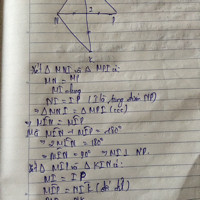 N I P
K
Xét △ MNI và △ MPI có:
MN = MP
MI chung
NI = IP (I là trung điểm NP)
⇒ △MNI = △MPI (ccc)
⇒ MIN = MIP
Mà MIN + MIP = 180°
⇒ 2MIN = 180°
⇒ MIN = 90° ⇒ MI ⊥ NP.
Xét △ MIP và △ KIN có:
NI = IP
MIP = NIK (đối đỉ)